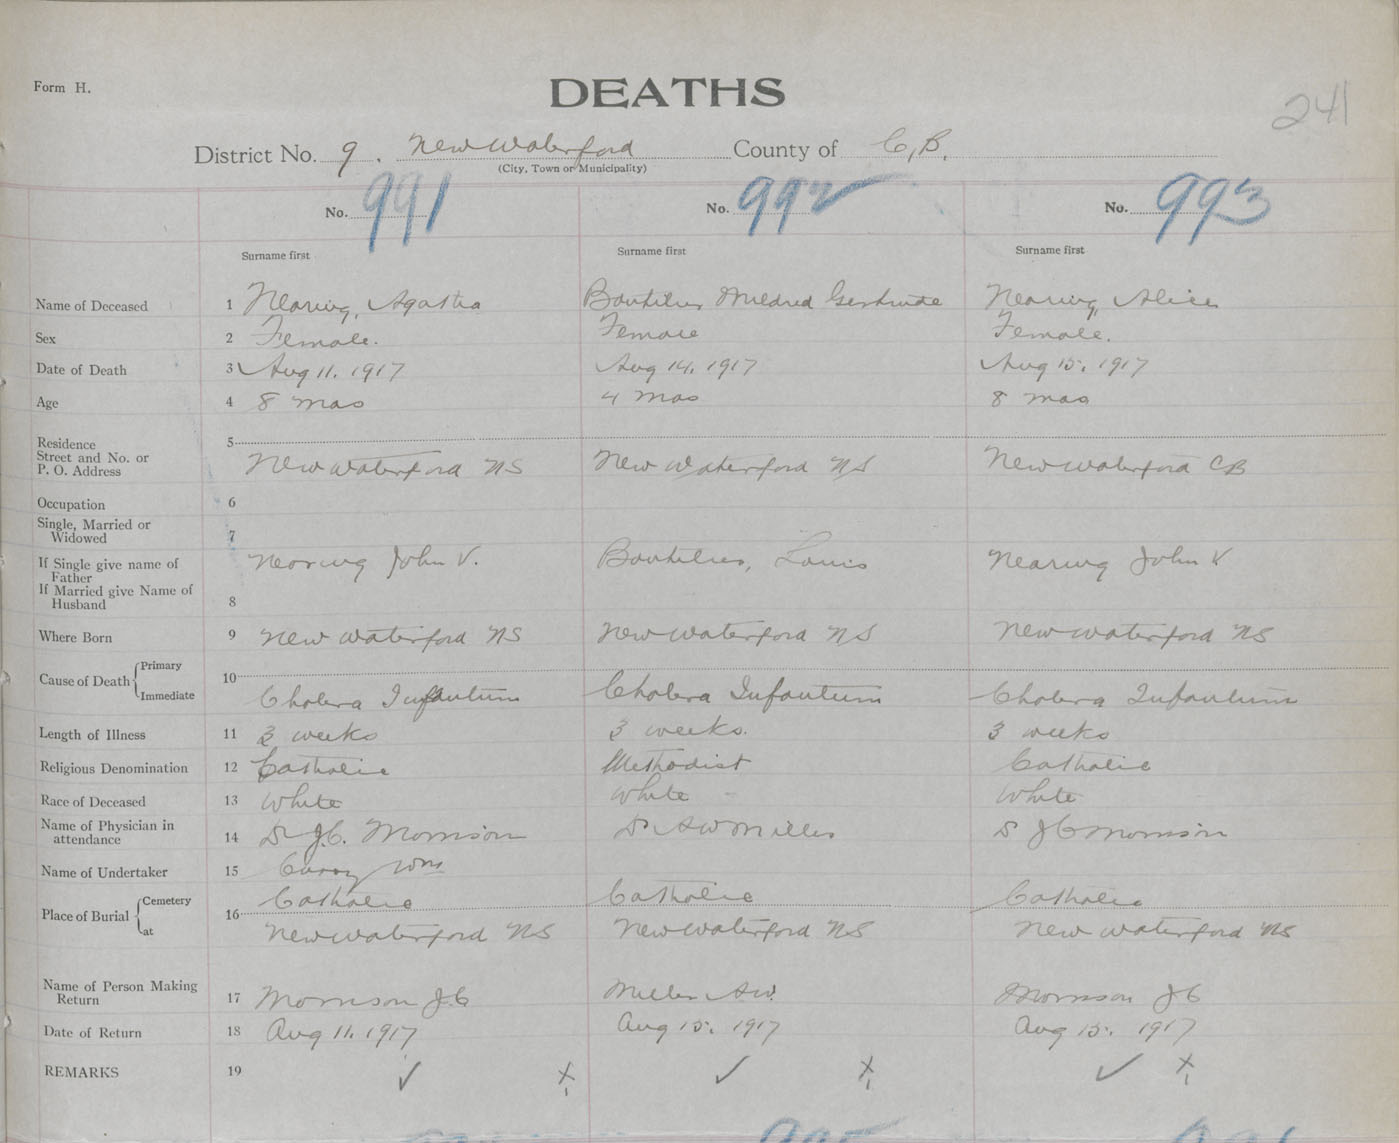 Form H.
DEATHS
241
District No. 9. New Waterford County of C,B,
(City, Town or Municipality)
No. 991 No. 992 No. 993
Surname first Surname first Surname first
Name of Deceased 1 Nearing, Agatha Boutilier Mildred Gertrude Nearing, Alice
Sex 2 Female. Female Female.
Date of Death 3 Aug 11. 1917 Aug 14, 1917 Aug 15. 1917
Age 4 8 mos 4 mos 8 mos
Residence Street and No. or P. O. Address 5 New Waterford NS New Waterford NS New Waterford CB
Occupation 6
Single, Married or Widowed 7
If Single give name of Father Nearing John V. Boutilier, Louis Nearing John V
If Married give Name of Husband 8
Where Born 9 New Waterford NS New Waterford NS New Waterford NS
Cause of Death Primary 10
Immediate Cholera Infantum Cholera Infantum Cholera Infantum
Length of Illness 11 3 weeks 3 weeks. 3 weeks
Religious Denomination 12 Catholic Methodist Catholic
Race of Deceased 13 White White White
Name of Physician in attendance 14 Dr J.C. Morrison Dr A W Miller Dr J C Morrison
Name of Undertaker 15 Curry Wm
Place of Burial Cemetery 16 Catholic Catholic Catholic
at New Waterford NS New Waterford NS New Waterford NS
Name of Person Making Return 17 Morrison J.C Miller A W. Morrison J C
Date of Return 18 Aug 11. 1917 Aug 15. 1917 Aug 15. 1917
REMARKS 19 ✓ X ✓ X ✓ X